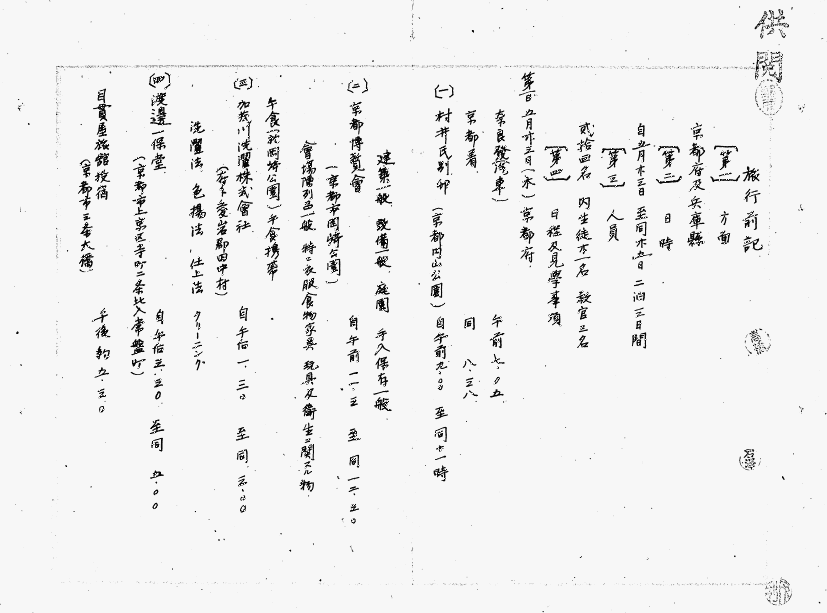 供閲
旅行前記
【第一】方面
京都府及兵庫縣
【第二】日時
自五月廿三日 至同廿五日 二泊三日間
【第三】人員
貳拾四名 内生徒廿一名 教官三名
【第四】日程及見學事項
第一日 五月廿三日(水)京都府
奈良發汽車 午前七.〇五
京都着 同 八.三八
(一) 村井氏別邸 (京都円山公園) 自午前九.〇〇 至同十一時
建築一般 設備一般 庭園 手入保存一般
(二) 京都博覧會 自午前一一.三〇 至同一二.三〇
(京都市岡崎公園)
會場陳列品一般 特ニ衣服食物家具 玩具及衛生ニ関スル物
午食(於岡崎公園)午食携帯
(三) 加茂川洗濯株式會社 自午后一.三〇 至同三.〇〇
(右下愛宕郡田中村)
洗濯法、色揚法、仕上法 クリーニング
(四) 渡邊一保堂 自午后三.三〇 至同五.〇〇
(京都市上京区寺町二条北入常盤町)
目貫屋旅館投宿 午後約五.三〇
(京都市三条大橋)